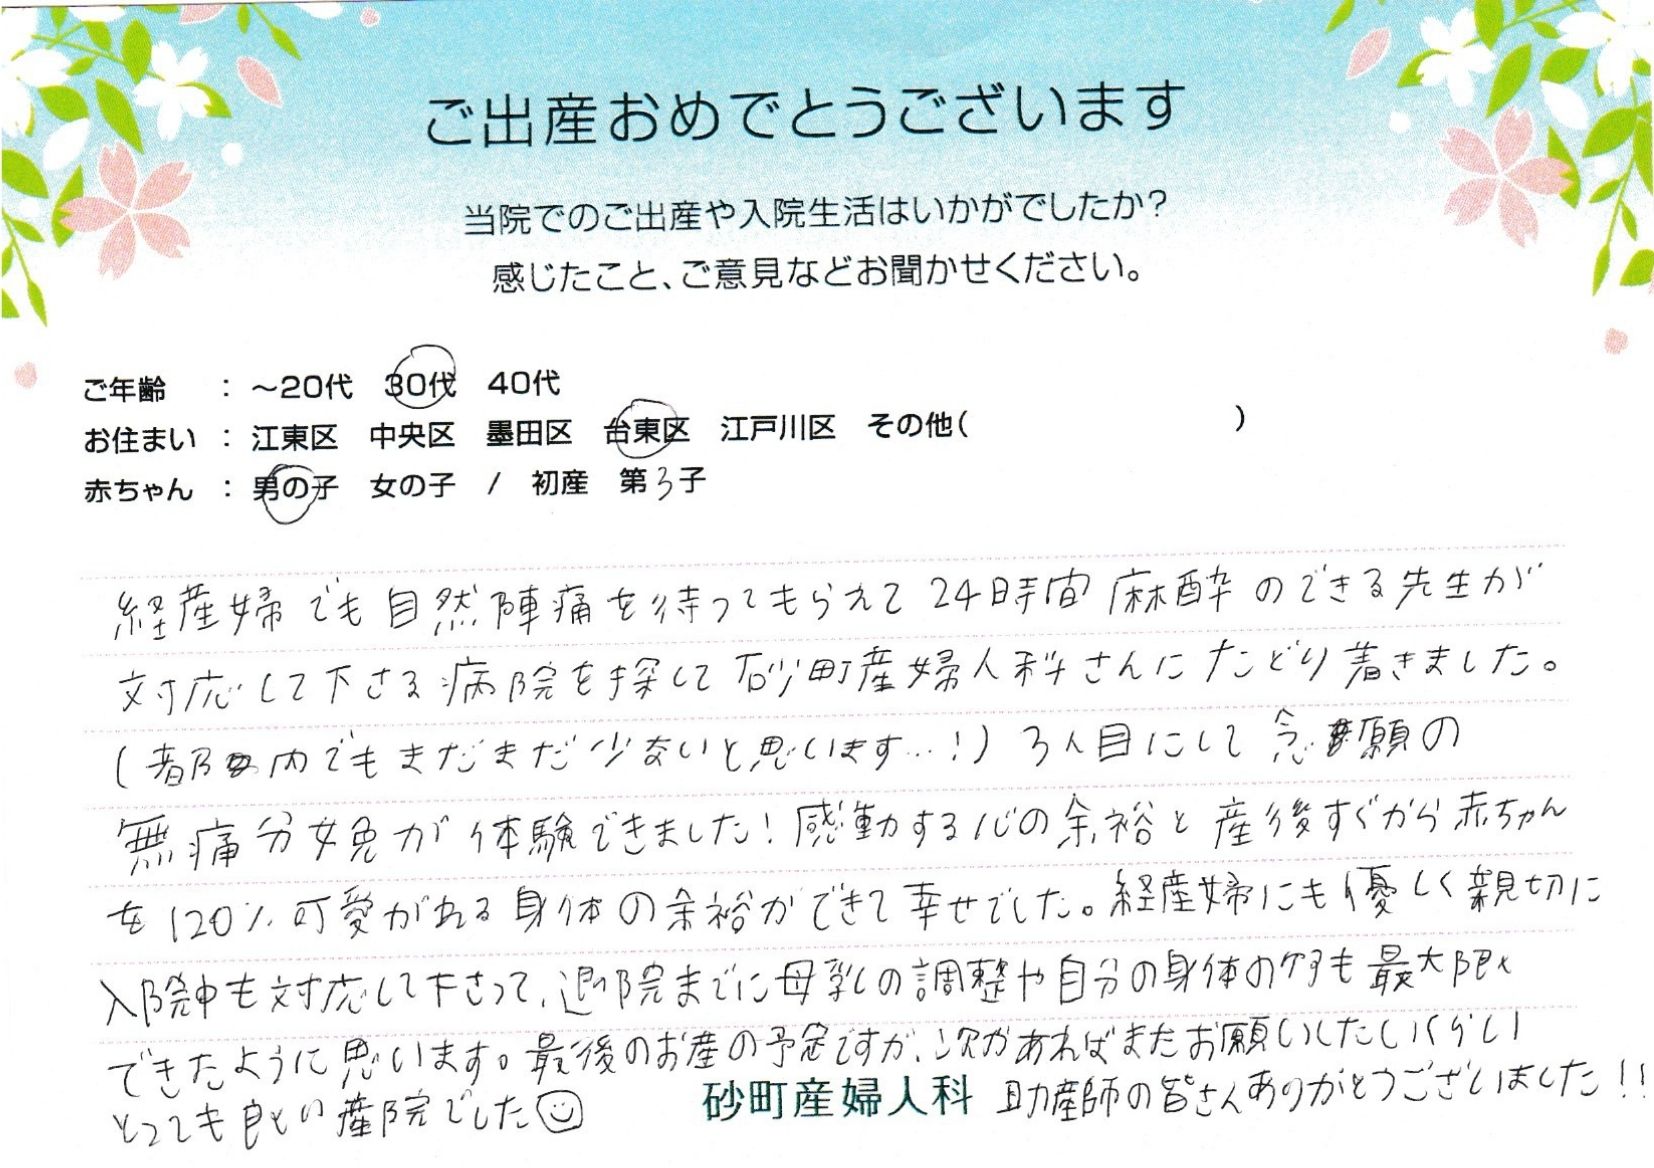 ご出産おめでとうございます
当院でのご出産や入院生活はいかがでしたか?
感じたこと、ご意見などお聞かせください。
ご年齢 : ～20代 30代 40代
お住まい : 江東区 中央区 墨田区 台東区 江戸川区 その他( )
赤ちゃん : 男の子 女の子 / 初産 第3子
経産婦でも自然陣痛を待ってもらえて24時間麻酔のできる先生が
対応して下さる病院を探して砂町産婦人科さんにたどり着きました。
(都内でもまだまだ少ないと思います…!) 3人目にして念願の
無痛分娩が体験できました!感動する心の余裕と産後すぐから赤ちゃん
を120%可愛がれる身体の余裕ができて幸せでした。経産婦にも優しく親切に
入院中も対応して下さって、退院までに母乳の調整や自分の身体のケアも最大限
できたように思います。最後のお産の予定ですが、次があればまたお願いしたいくらい
とっても良い産院でした 砂町産婦人科 助産師の皆さんありがとうございました!!